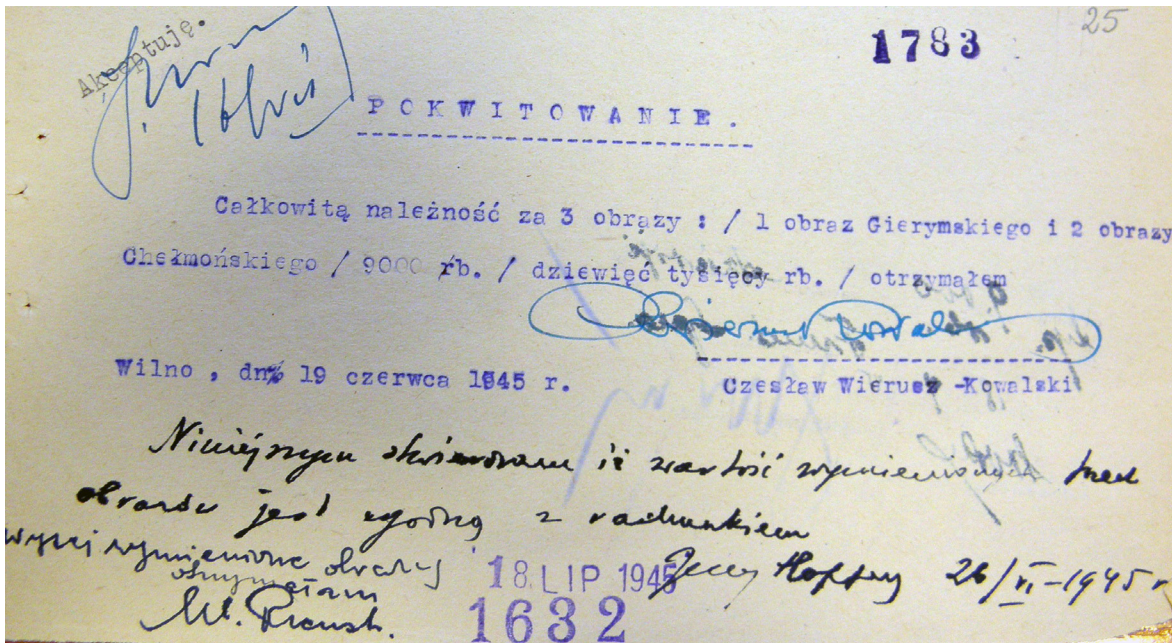 25
1783
Akceptuję.
POKWITOWANIE.
Całkowitą należność za 3 obrazy : / 1 obraz Gierymskiego i 2 obrazy
Chełmońskiego / 9000 rb. / dziewięć tysięcy rb. / otrzymałem
Wilno , dn% 19 czerwca 1945 r.
Czesław Wierusz -Kowalski
Niniejszym stwierdzam iż wartość wymienionych trzech
obrazów jest zgodna z rachunkiem
Jerzy Hoppen 26/VI-1945 r.
wyżej wymienione obrazy
otrzymałam
18 LIP 1945
1632